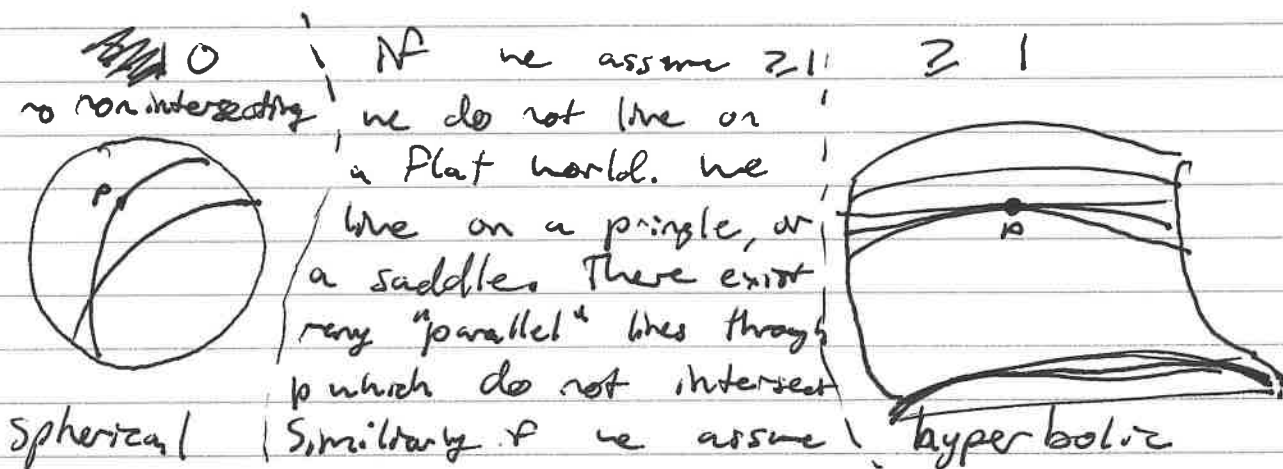 0
no nonintersecting
p
spherical
If we assume ≥1
we do not live on
a flat world. We
live on a pringle, or
a saddle. There exist
many "parallel" lines through
p which do not intersect
Similiarly if we assume
≥ 1
p
hyperbolic